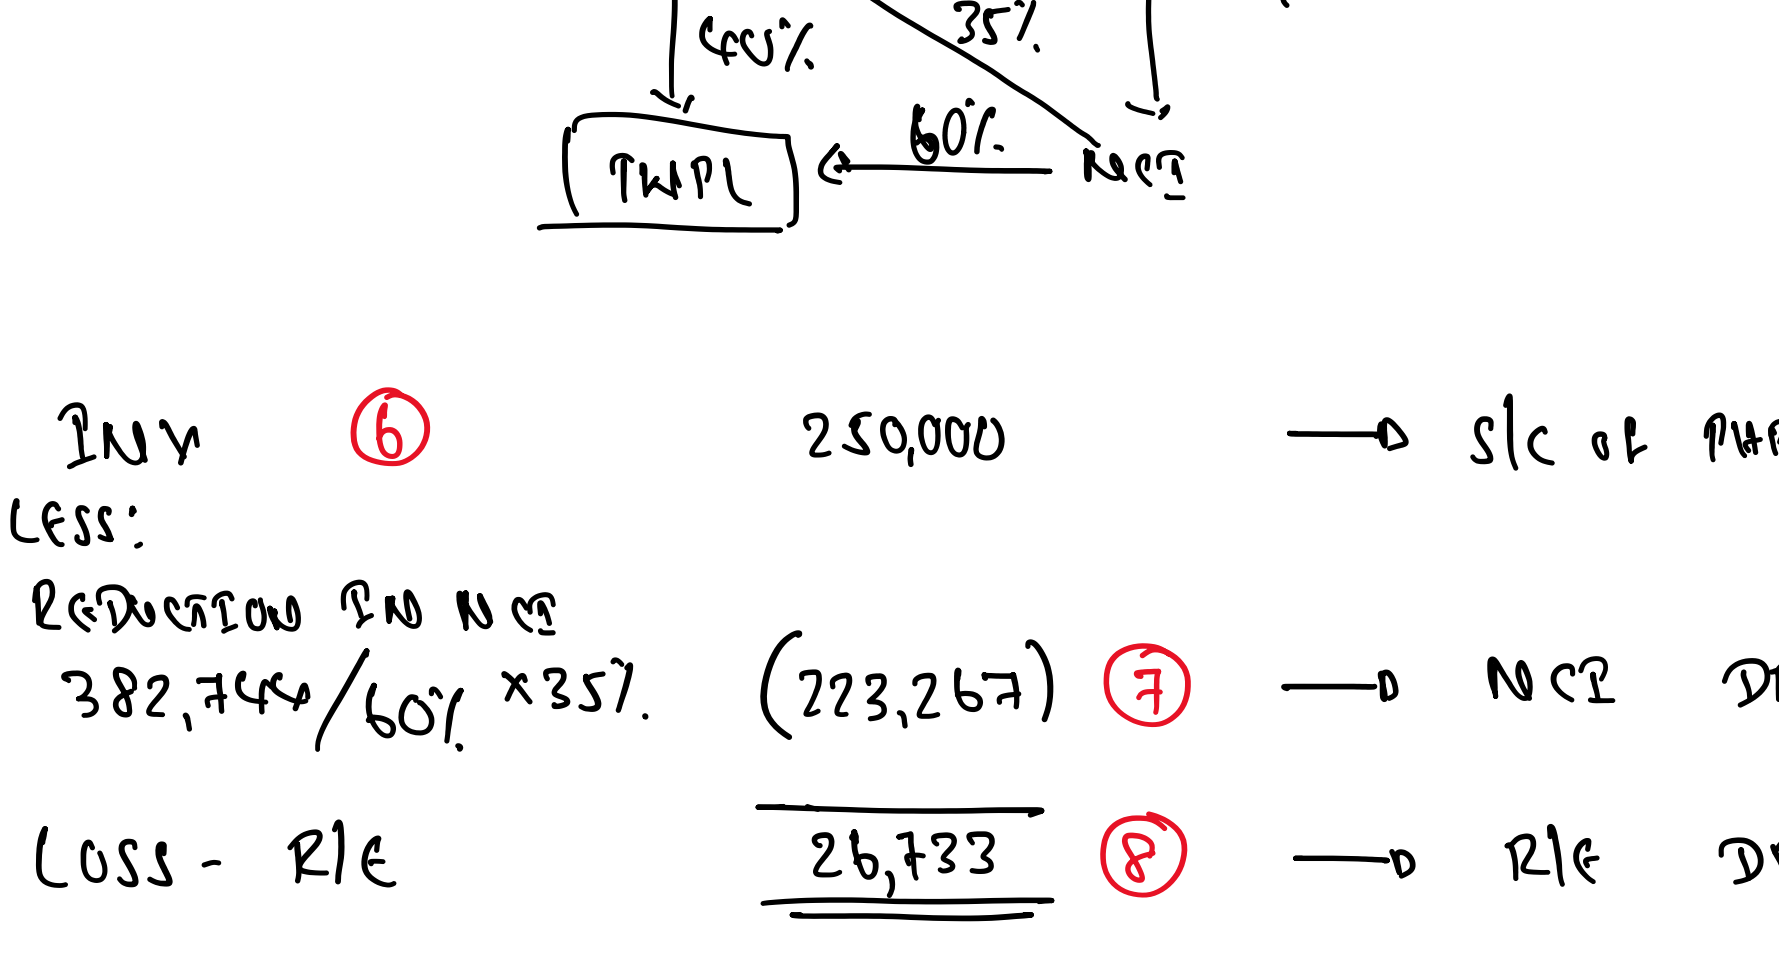 40% 35%
60%
TWPL NCI
INV 6 250,000 S/C OF
LESS:
REDUCTION IN NCI
382,744/60% x35% (223,267) 7 NCI
LOSS - R/E 26,733 8 R/E